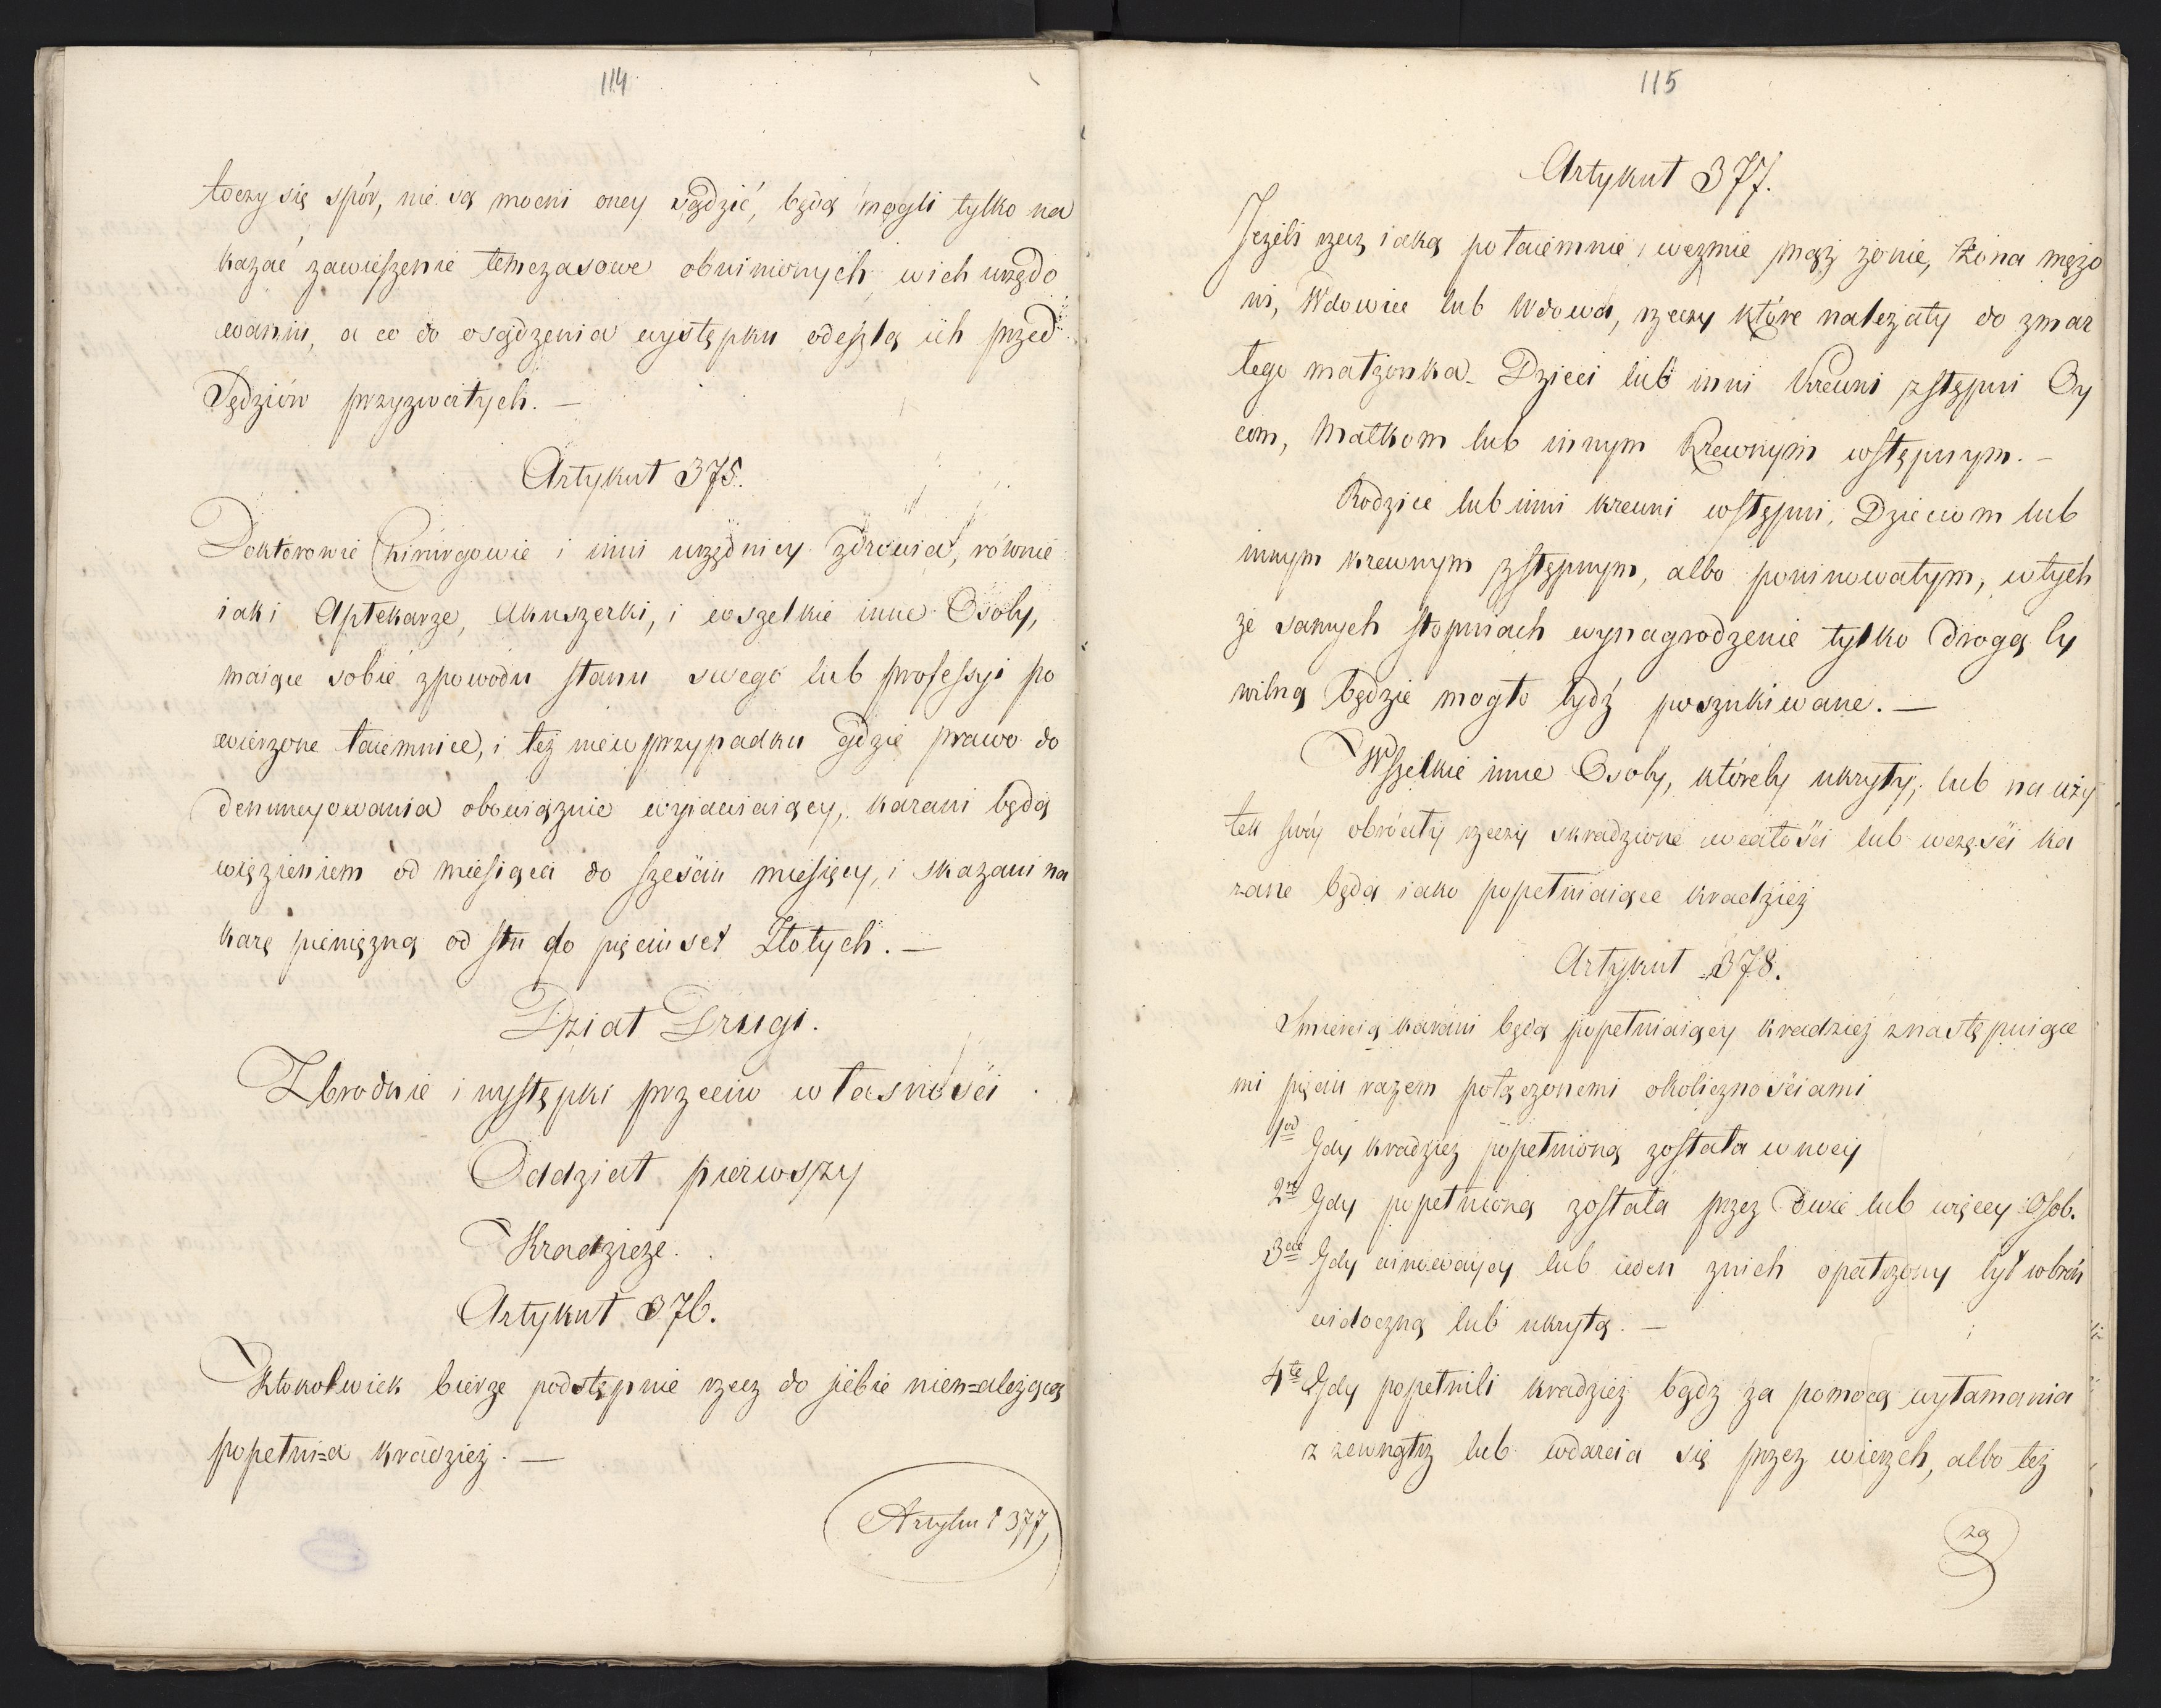 114
toczy się spór, nie są mocni oney sądzić, będą mogli tylko na
kazać zawieszenie temczasowe obwinionych, w ich urzędo
waniu, a co do osądzenia występku odeszlą ich przed
Sędziów przyzwoitych. —
Artykuł 375.
Doktorowie Chirurgowie i inni urzędnicy zdrowia, równie
iak i Aptekarze, Akuszerki, i wszelkie inne Osoby,
maiące sobie z powodu stanu swego lub professyi po
wierzone taiemnice, i też nie w przypadku gdzie prawo do
denuncyowania obowiąznie wyiawiaiący, karani będą
więzieniem od miesiąca do sześciu miesięcy, i skazani na
karę pieniężną od stu do pięciuset Złotych. —
Dział Drugi.
Zbrodnie i występki przeciw własności
Oddział pierwszy
Kradzieże.
Artykuł 376.
Ktokolwiek bierze podstępnie rzecz do siebie nien=ależącą
popełni=a kradzież. —
Artykuł 377,
115
Artykuł 377.
Jeżeli rzecz iaką potaiemnie weźmie mąż żonie, Żona mężo
wi, Wdowiec lub Wdowa, rzeczy które należały do zmar
łego małżonka – Dzieci lub inni Krewni zstępni Oy
com, Matkom lub innym Krewnym wstępnym. —
Rodzice lub inni krewni wstępni, Dzieciom lub
innym krewnym zstępnym, albo powinowatym, w tych
że samych stopniach wynagrodzenie tylko drogą Cy
wilną będzie mogło bydź poszukiwane. —
Wszelkie inne Osoby, któreby ukryły, lub na uży
tek swóy obróciły rzeczy skradzione w całości lub w części ka
rane będą iako popełniaiące kradzież
Artykuł 378.
Śmiercią karani będą popełniaiący kradzież z następuiące
mi pięciu razem połączonemi okolicznościami
1od Gdy kradzież popełnioną została w nocy
2re Gdy popełnioną została przez dwie lub więcey Osob.
3cie Gdy winowaycy lub ieden z nich opatrzony był w broń
widoczną lub ukrytą. —
4te Gdy popełnili kradzież bądź za pomocą wyłamania
z zewnątrz lub wdarcia się przez wierzch, albo też
za